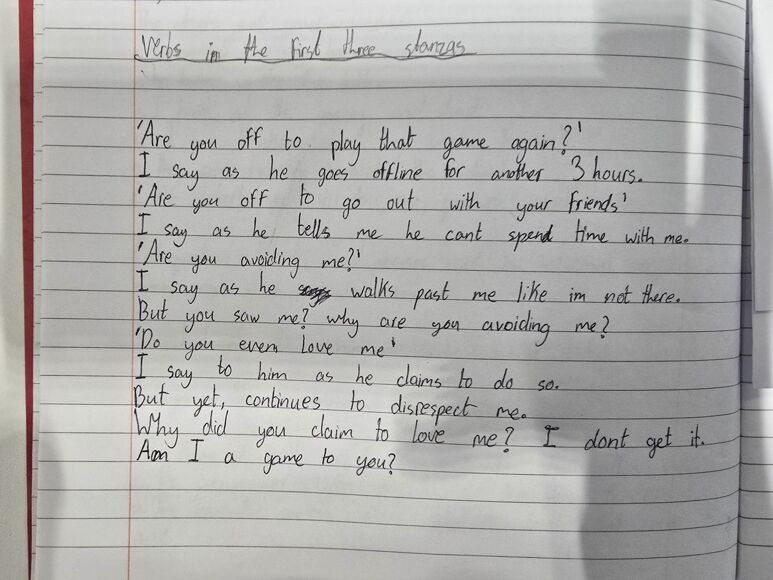 Verbs in the first three stanzas
'Are you off to play that game again?'
I say as he goes offline for another 3 hours.
'Are you off to go out with your friends'
I say as he tells me he cant spend time with me.
'Are you avoiding me?'
I say as he walks past me like im not there.
But you saw me? why are you avoiding me?
'Do you even love me'
I say to him as he claims to do so.
But yet, continues to disrespect me.
Why did you claim to love me? I dont get it.
Am I a game to you?